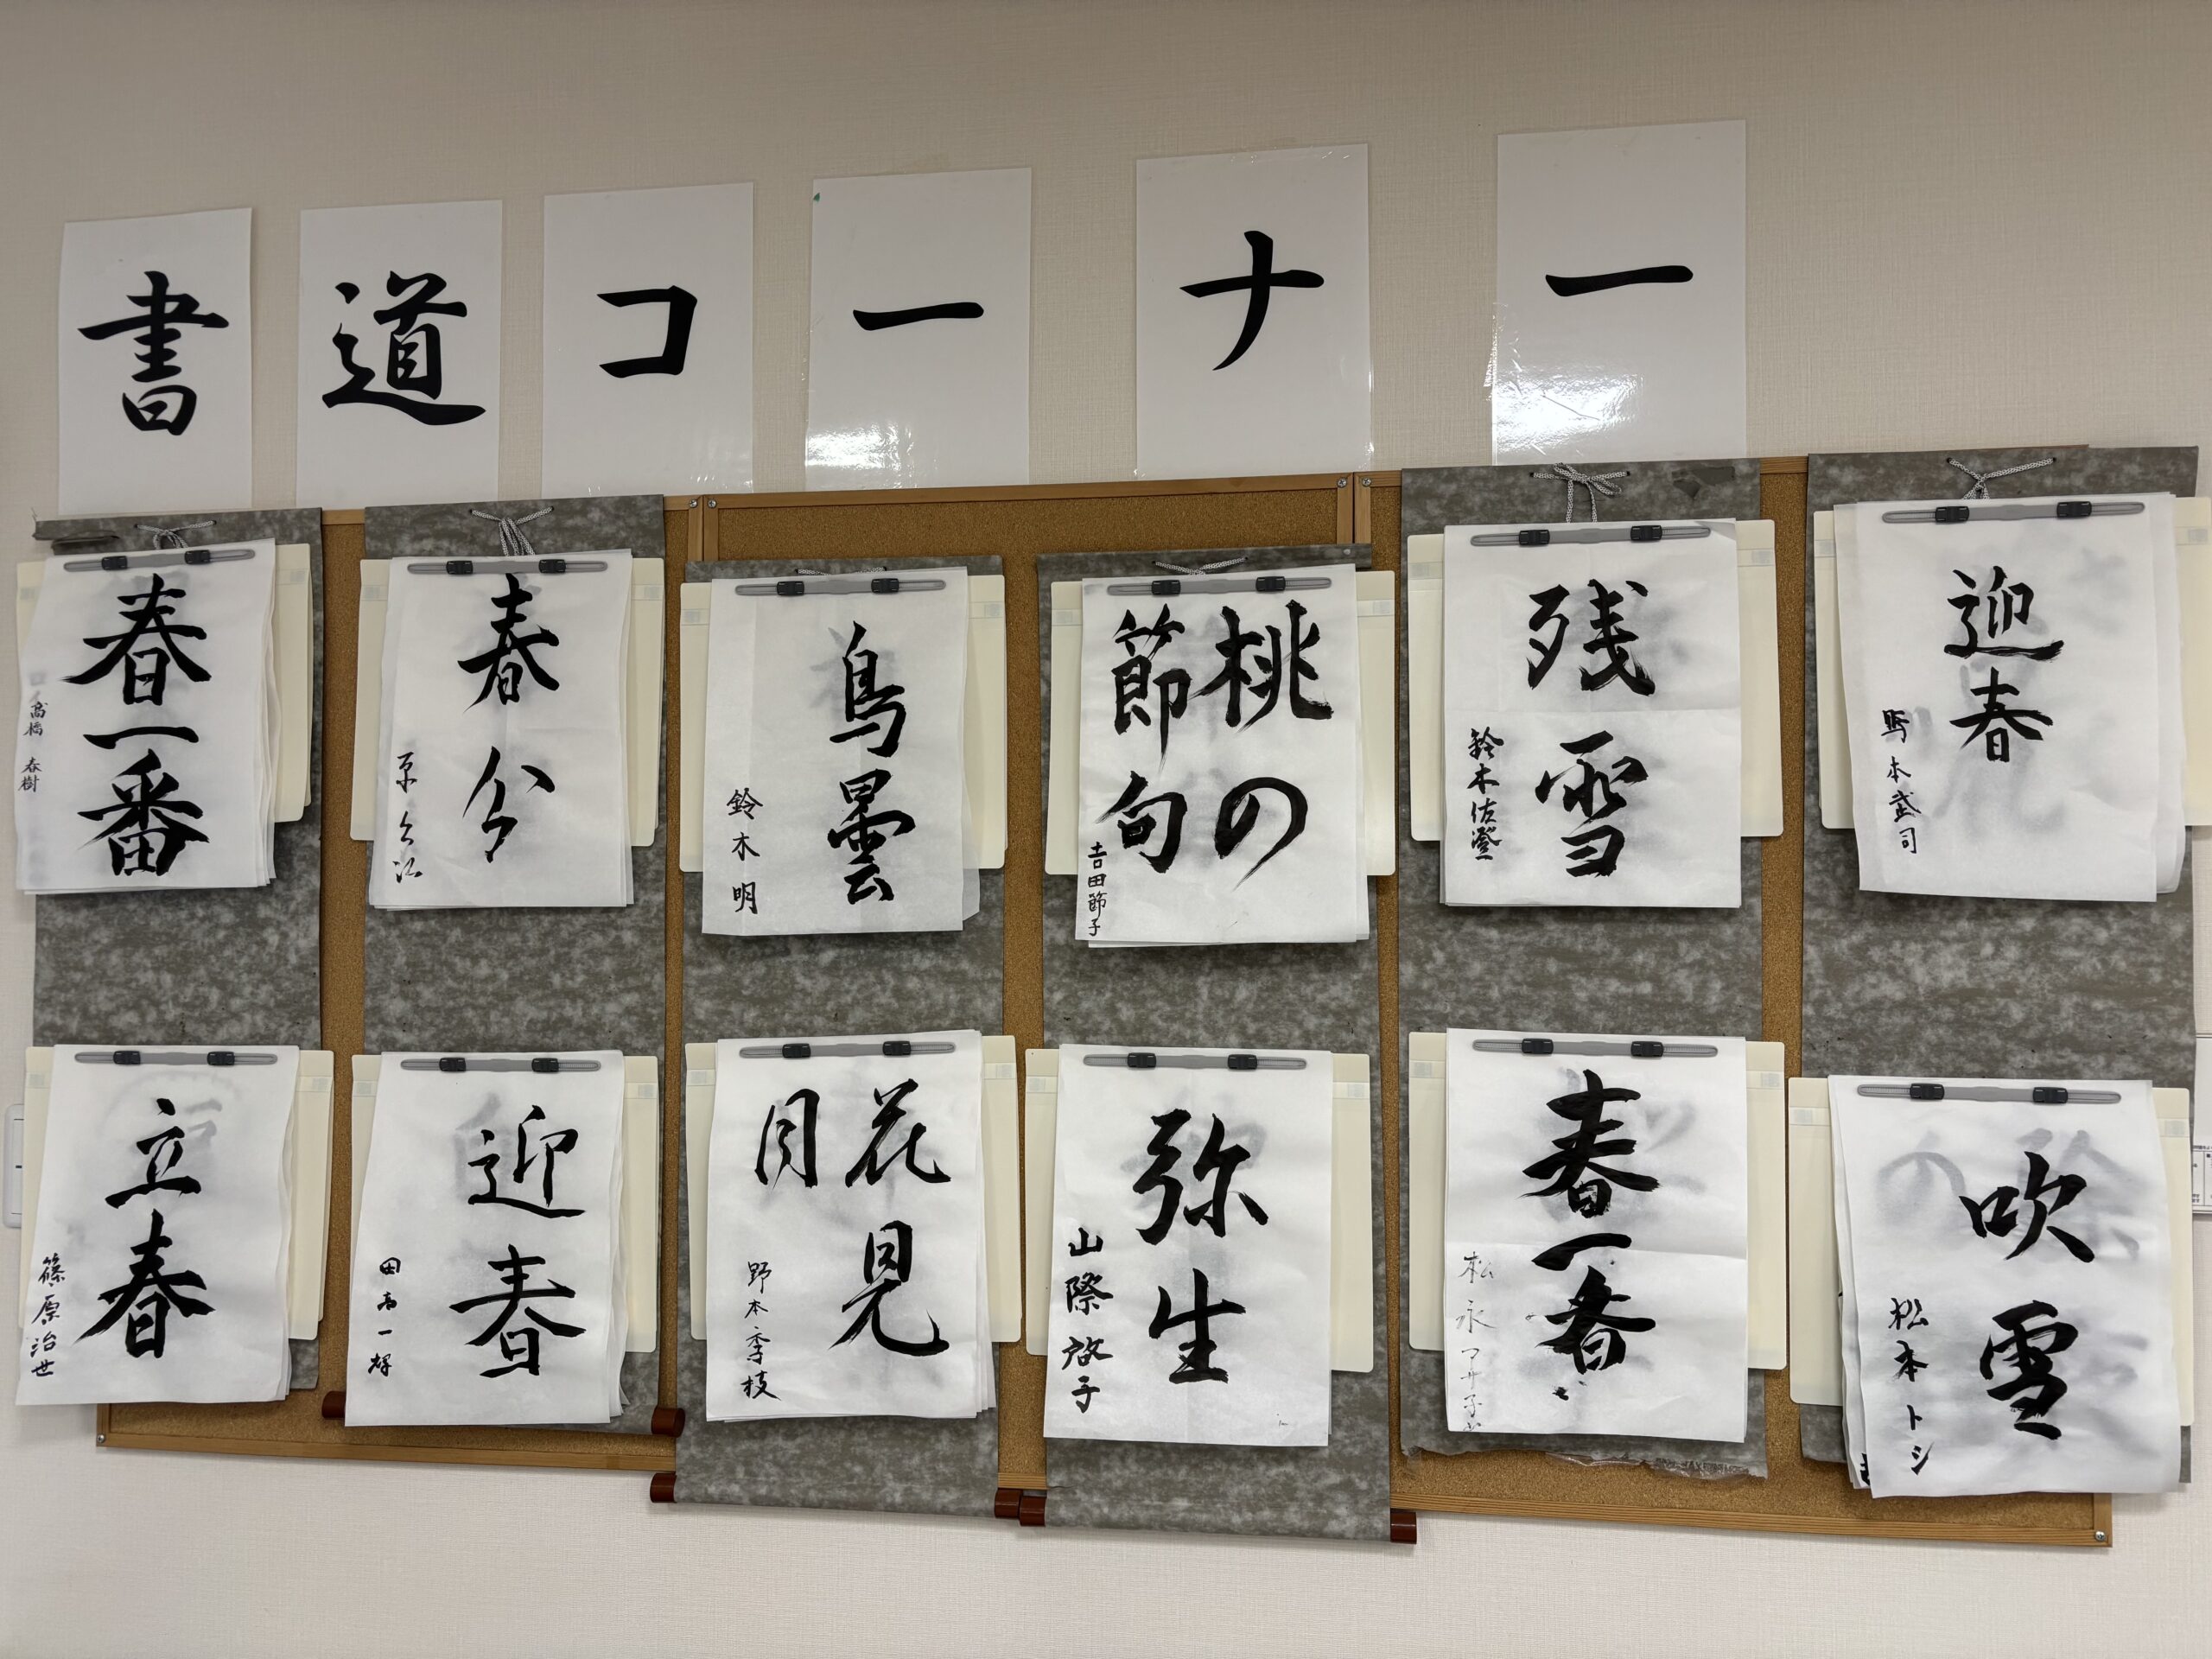 書道コーナー
春一番
高橋 春樹
春分
鳥曇
鈴木明
桃の
節句
吉田節子
残雪
鈴木佐澄
迎春
野本武司
立春
篠原治世
迎春
田高一輝
花見
月
野本季枝
弥生
山際啓子
春一番
松永マサ子
吹雪
松本トシ